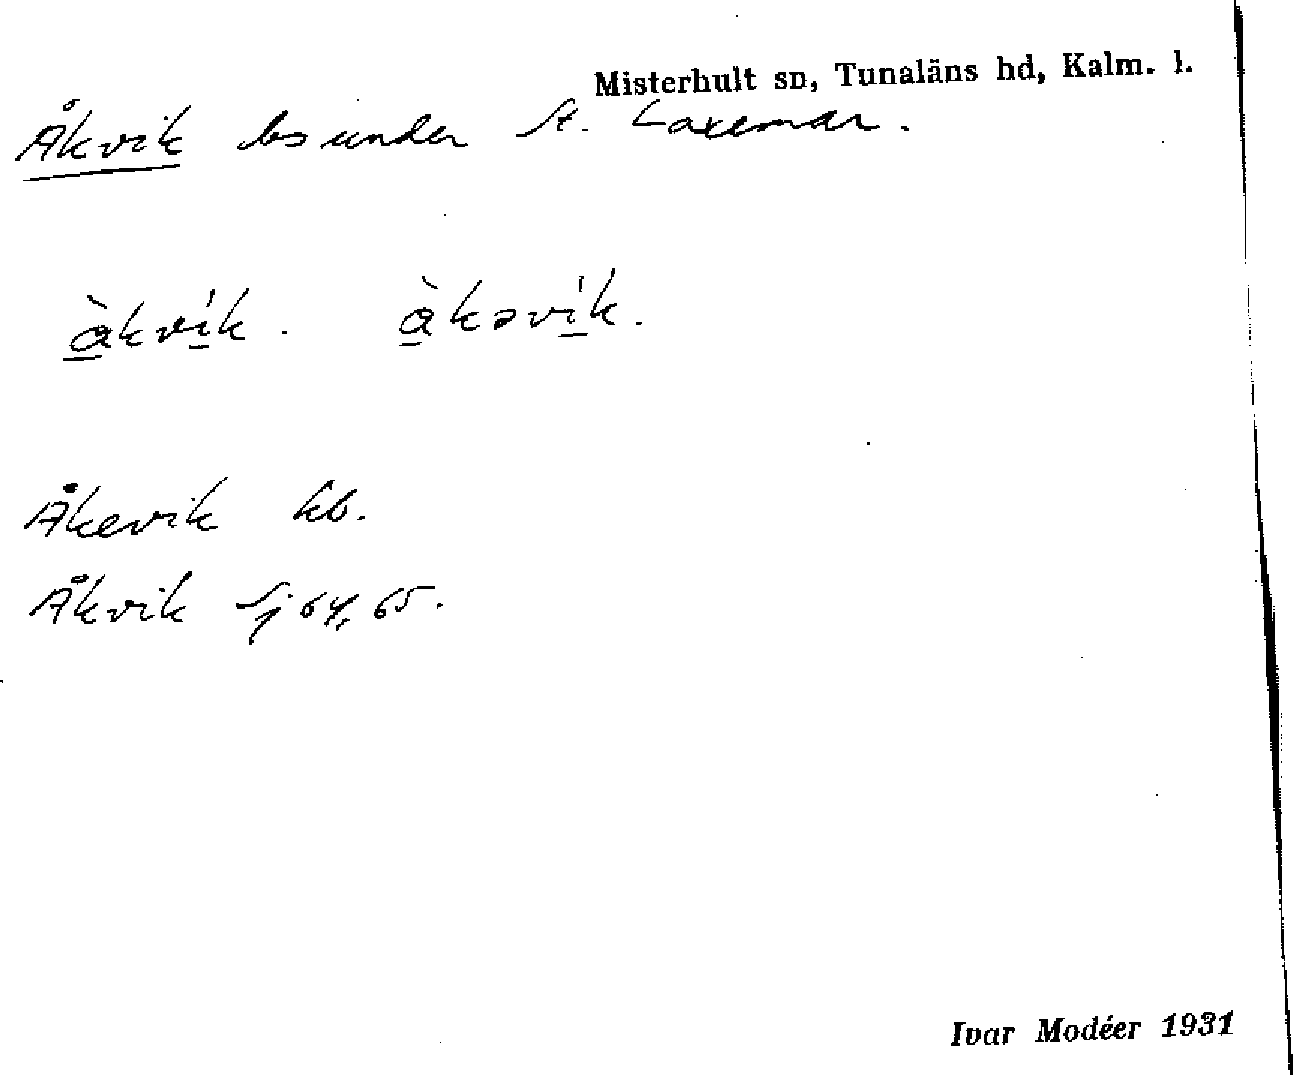 Misterhult sn, Tunaläns hd, Kalm. l.
Åkvik bs under St. Laxemar.
àkvík. àkəvík.
Åkevik kb.
Åkvik Sj 64, 65.
Ivar Modéer 1931